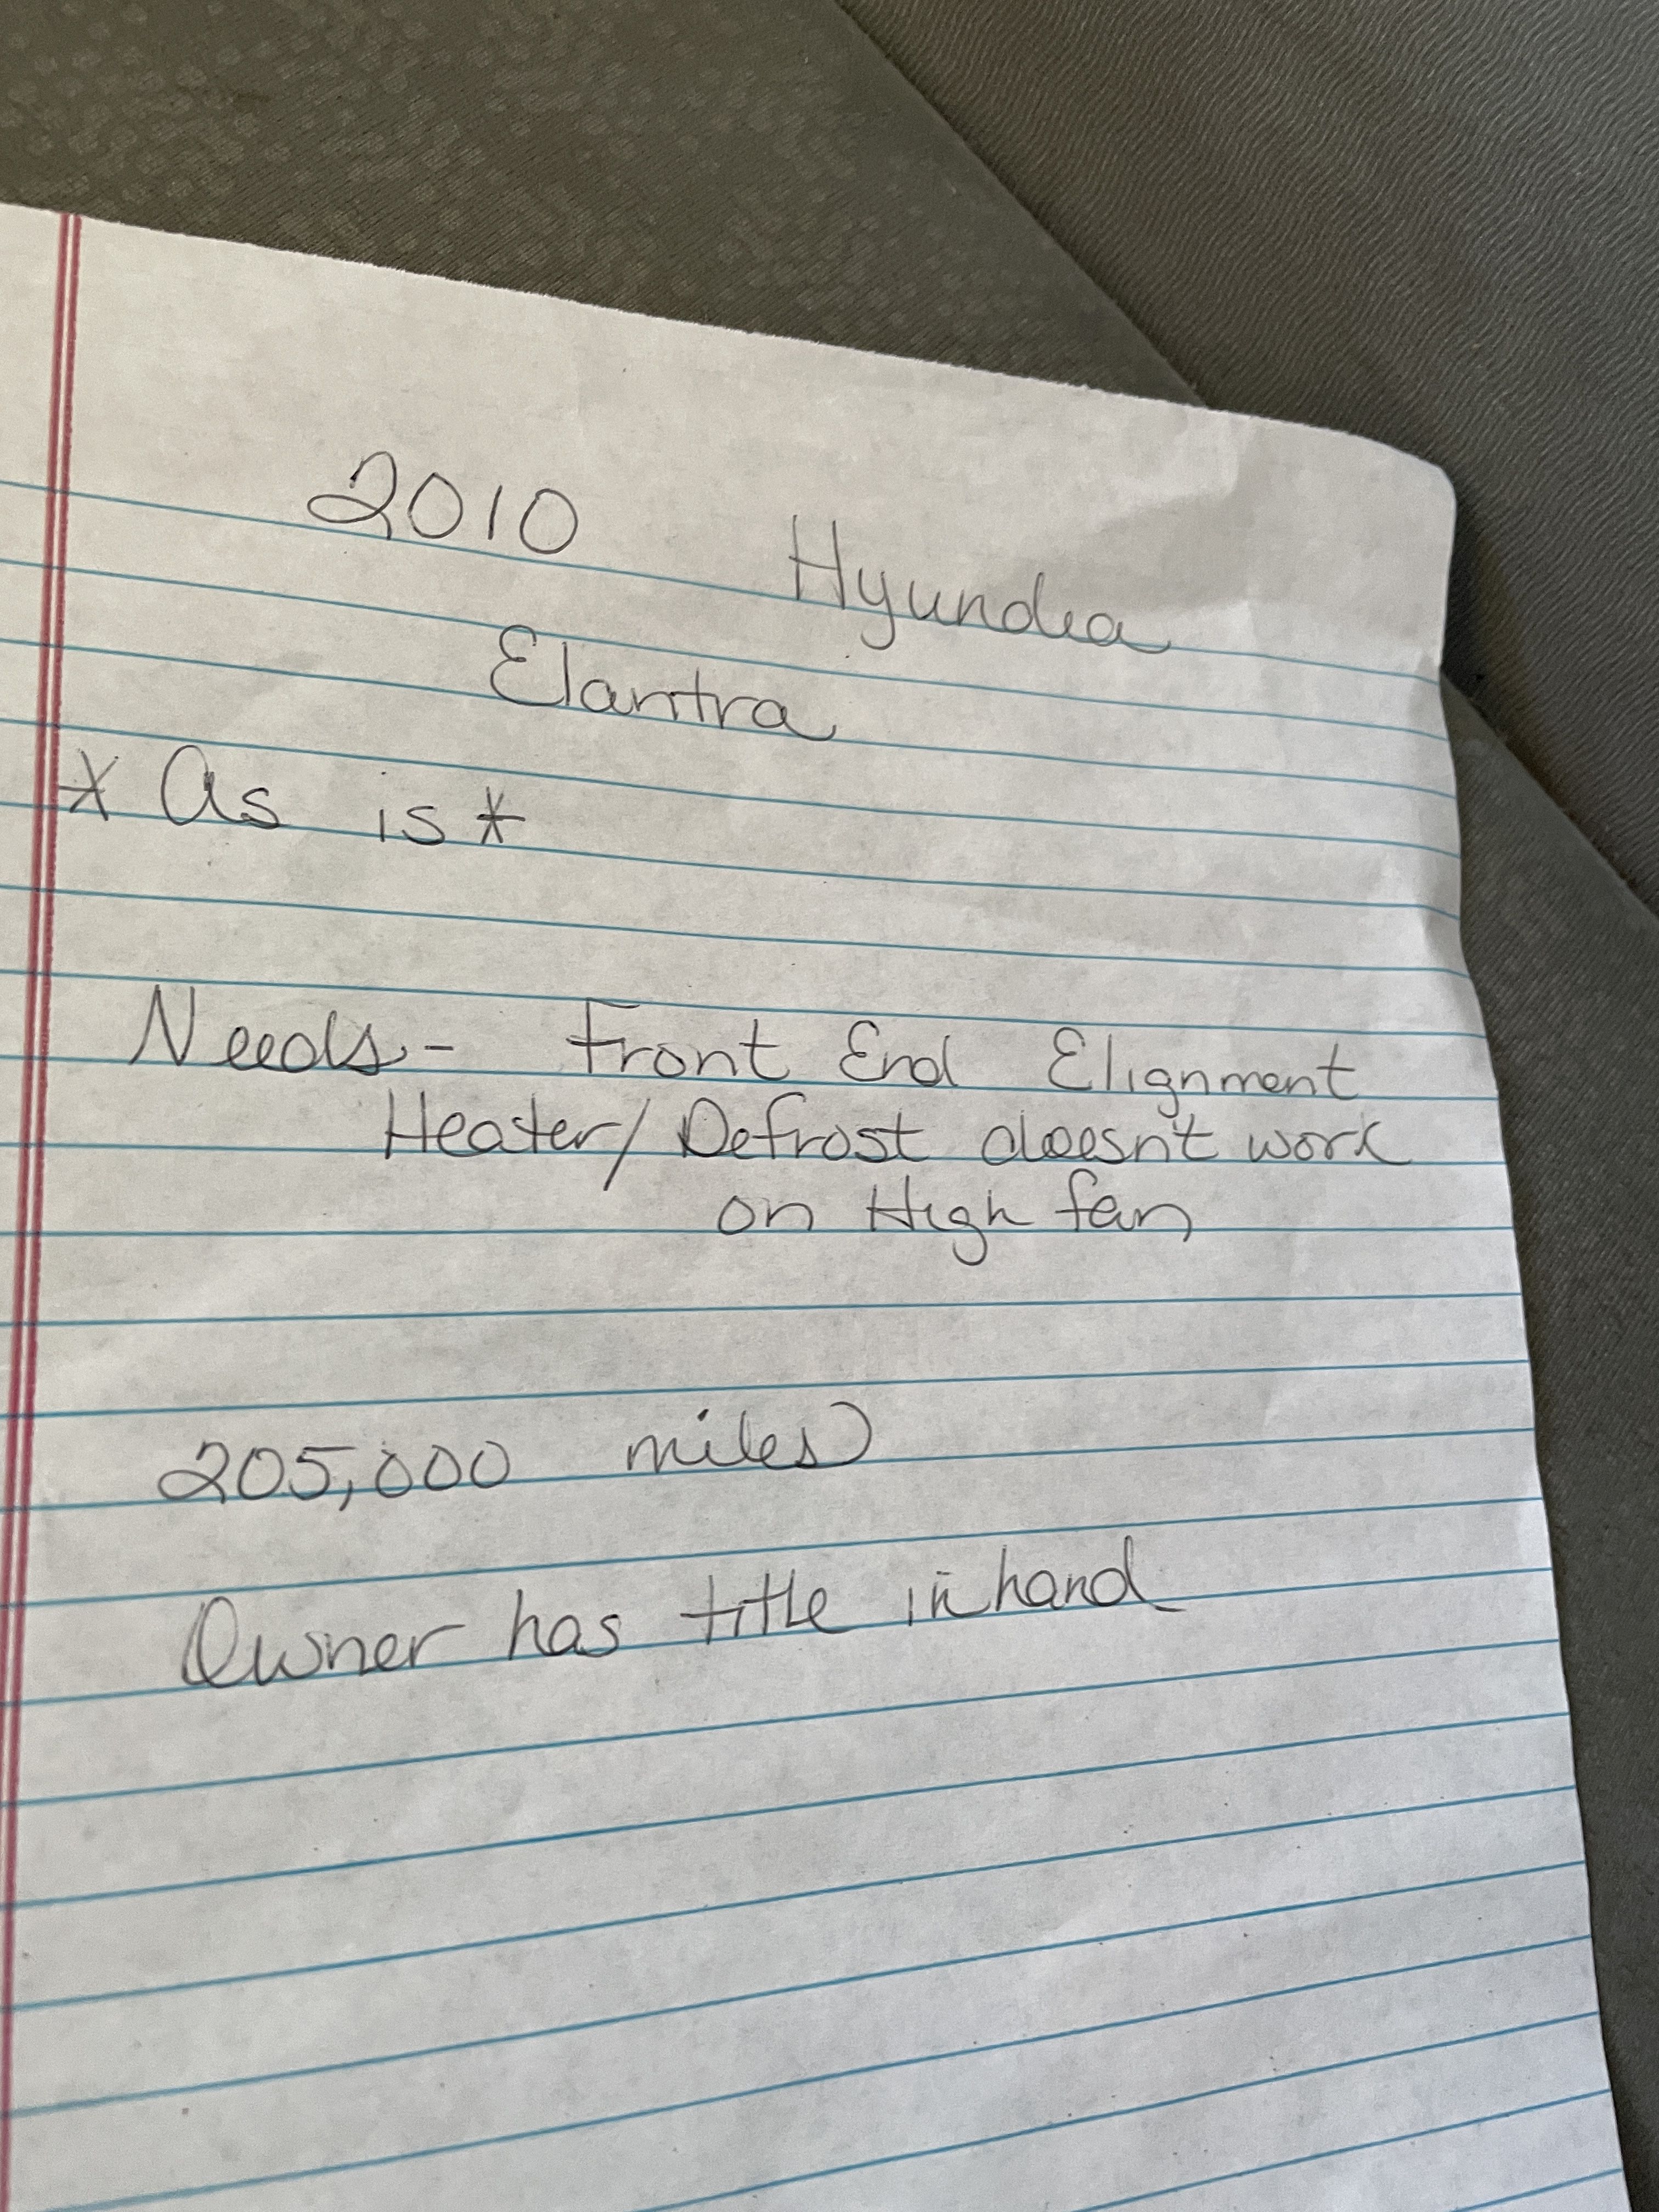 2010 Hyundia
Elantra
* As is *
Needs - Front End Elignment
Heater/Defrost doesn't work
on High fan
205,000 miles
Owner has title in hand